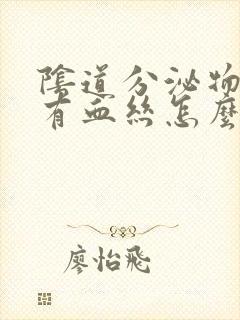 陰道分泌物
有血絲怎麼
廖怡飛